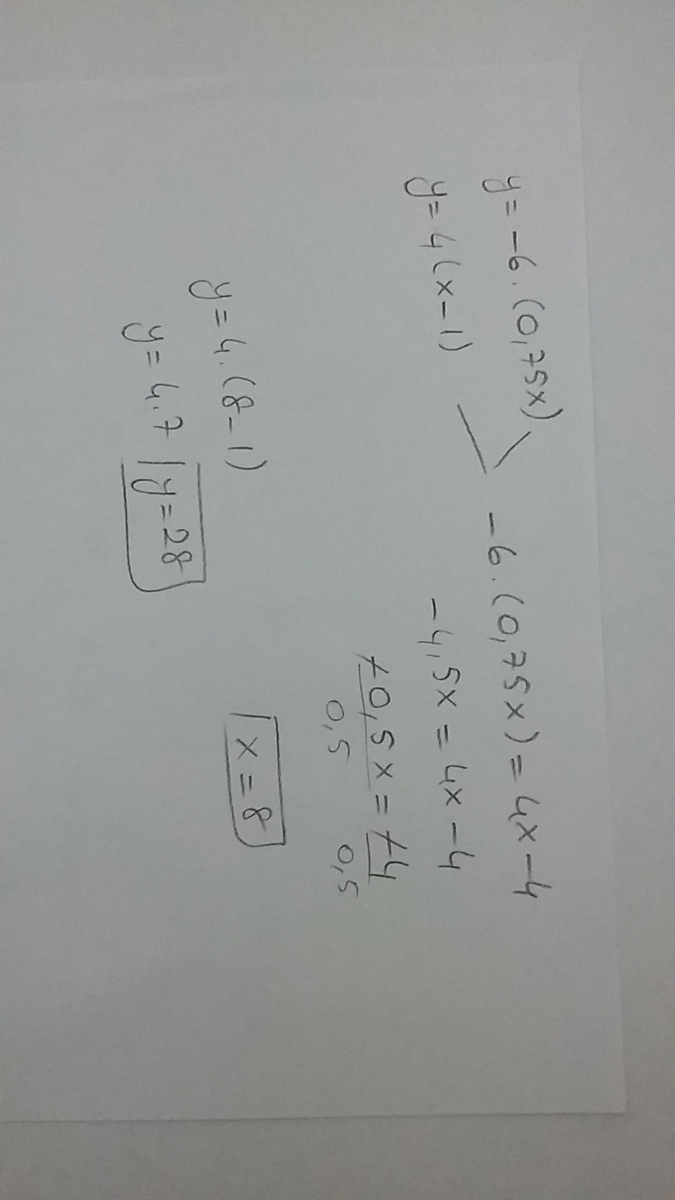 y = -6 . (0,75x)
y = 4(x-1)
-6 . (0,75x) = 4x-4
-4,5x = 4x-4
-0,5x = -4
0,5 0,5
x = 8
y = 4 . (8-1)
y = 4.7
y = 28